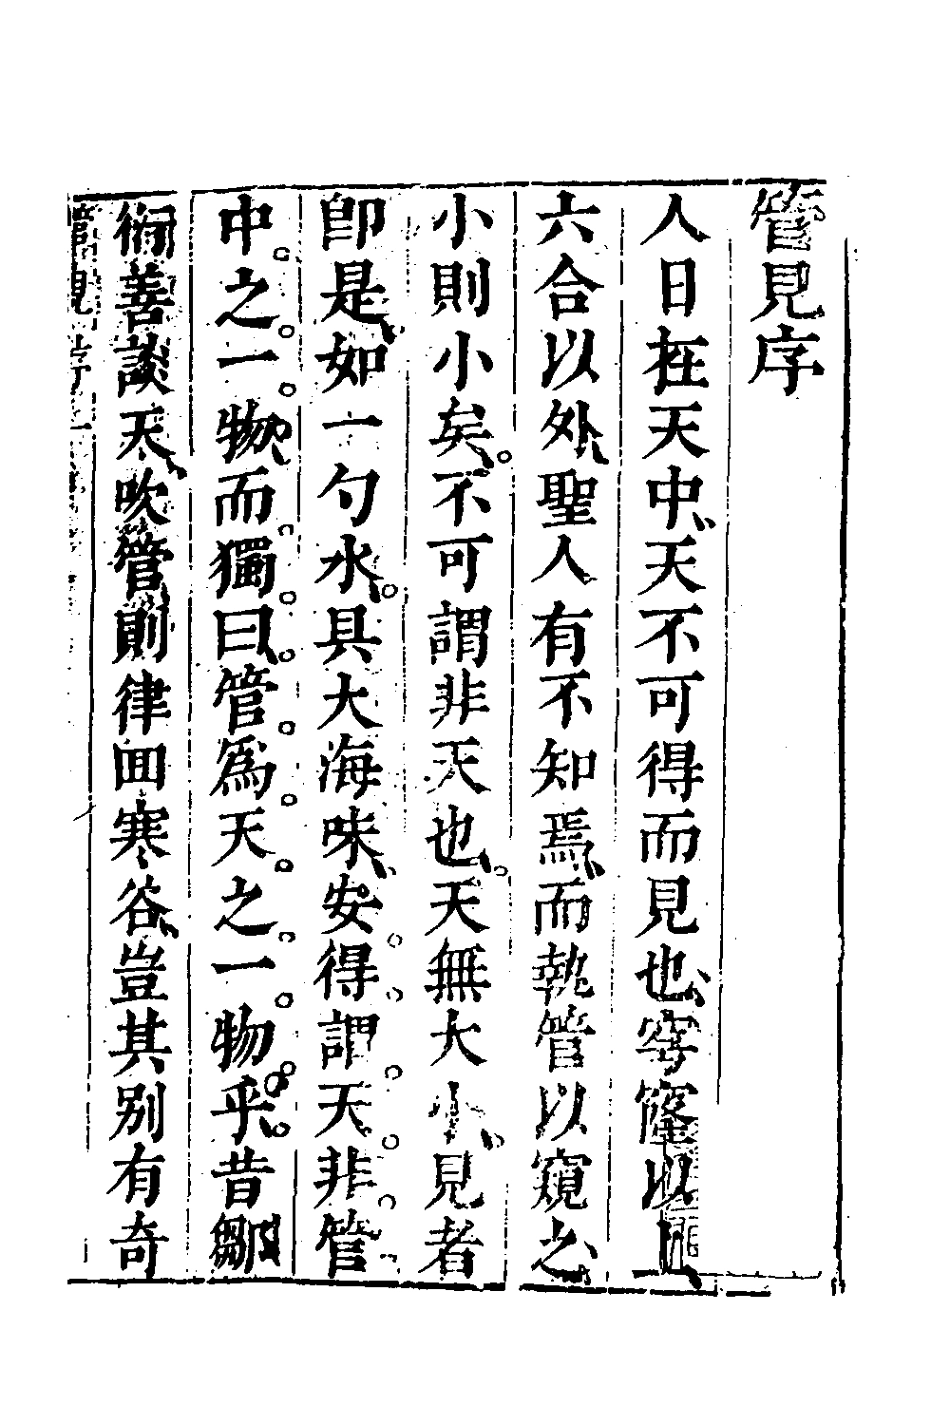 管見序
人日在天中、天不可得而見也、穹窿以上、
六合以外、聖人有不知焉、而執管以窺之、
小則小矣。不可謂非天也、天無大小、見者
卽是、如一勺水。具大海味、安得謂天非管
中之一物、而獨曰、管爲天之一物乎。昔鄒
衍善談天、吹管則律回寒谷、豈其別有奇